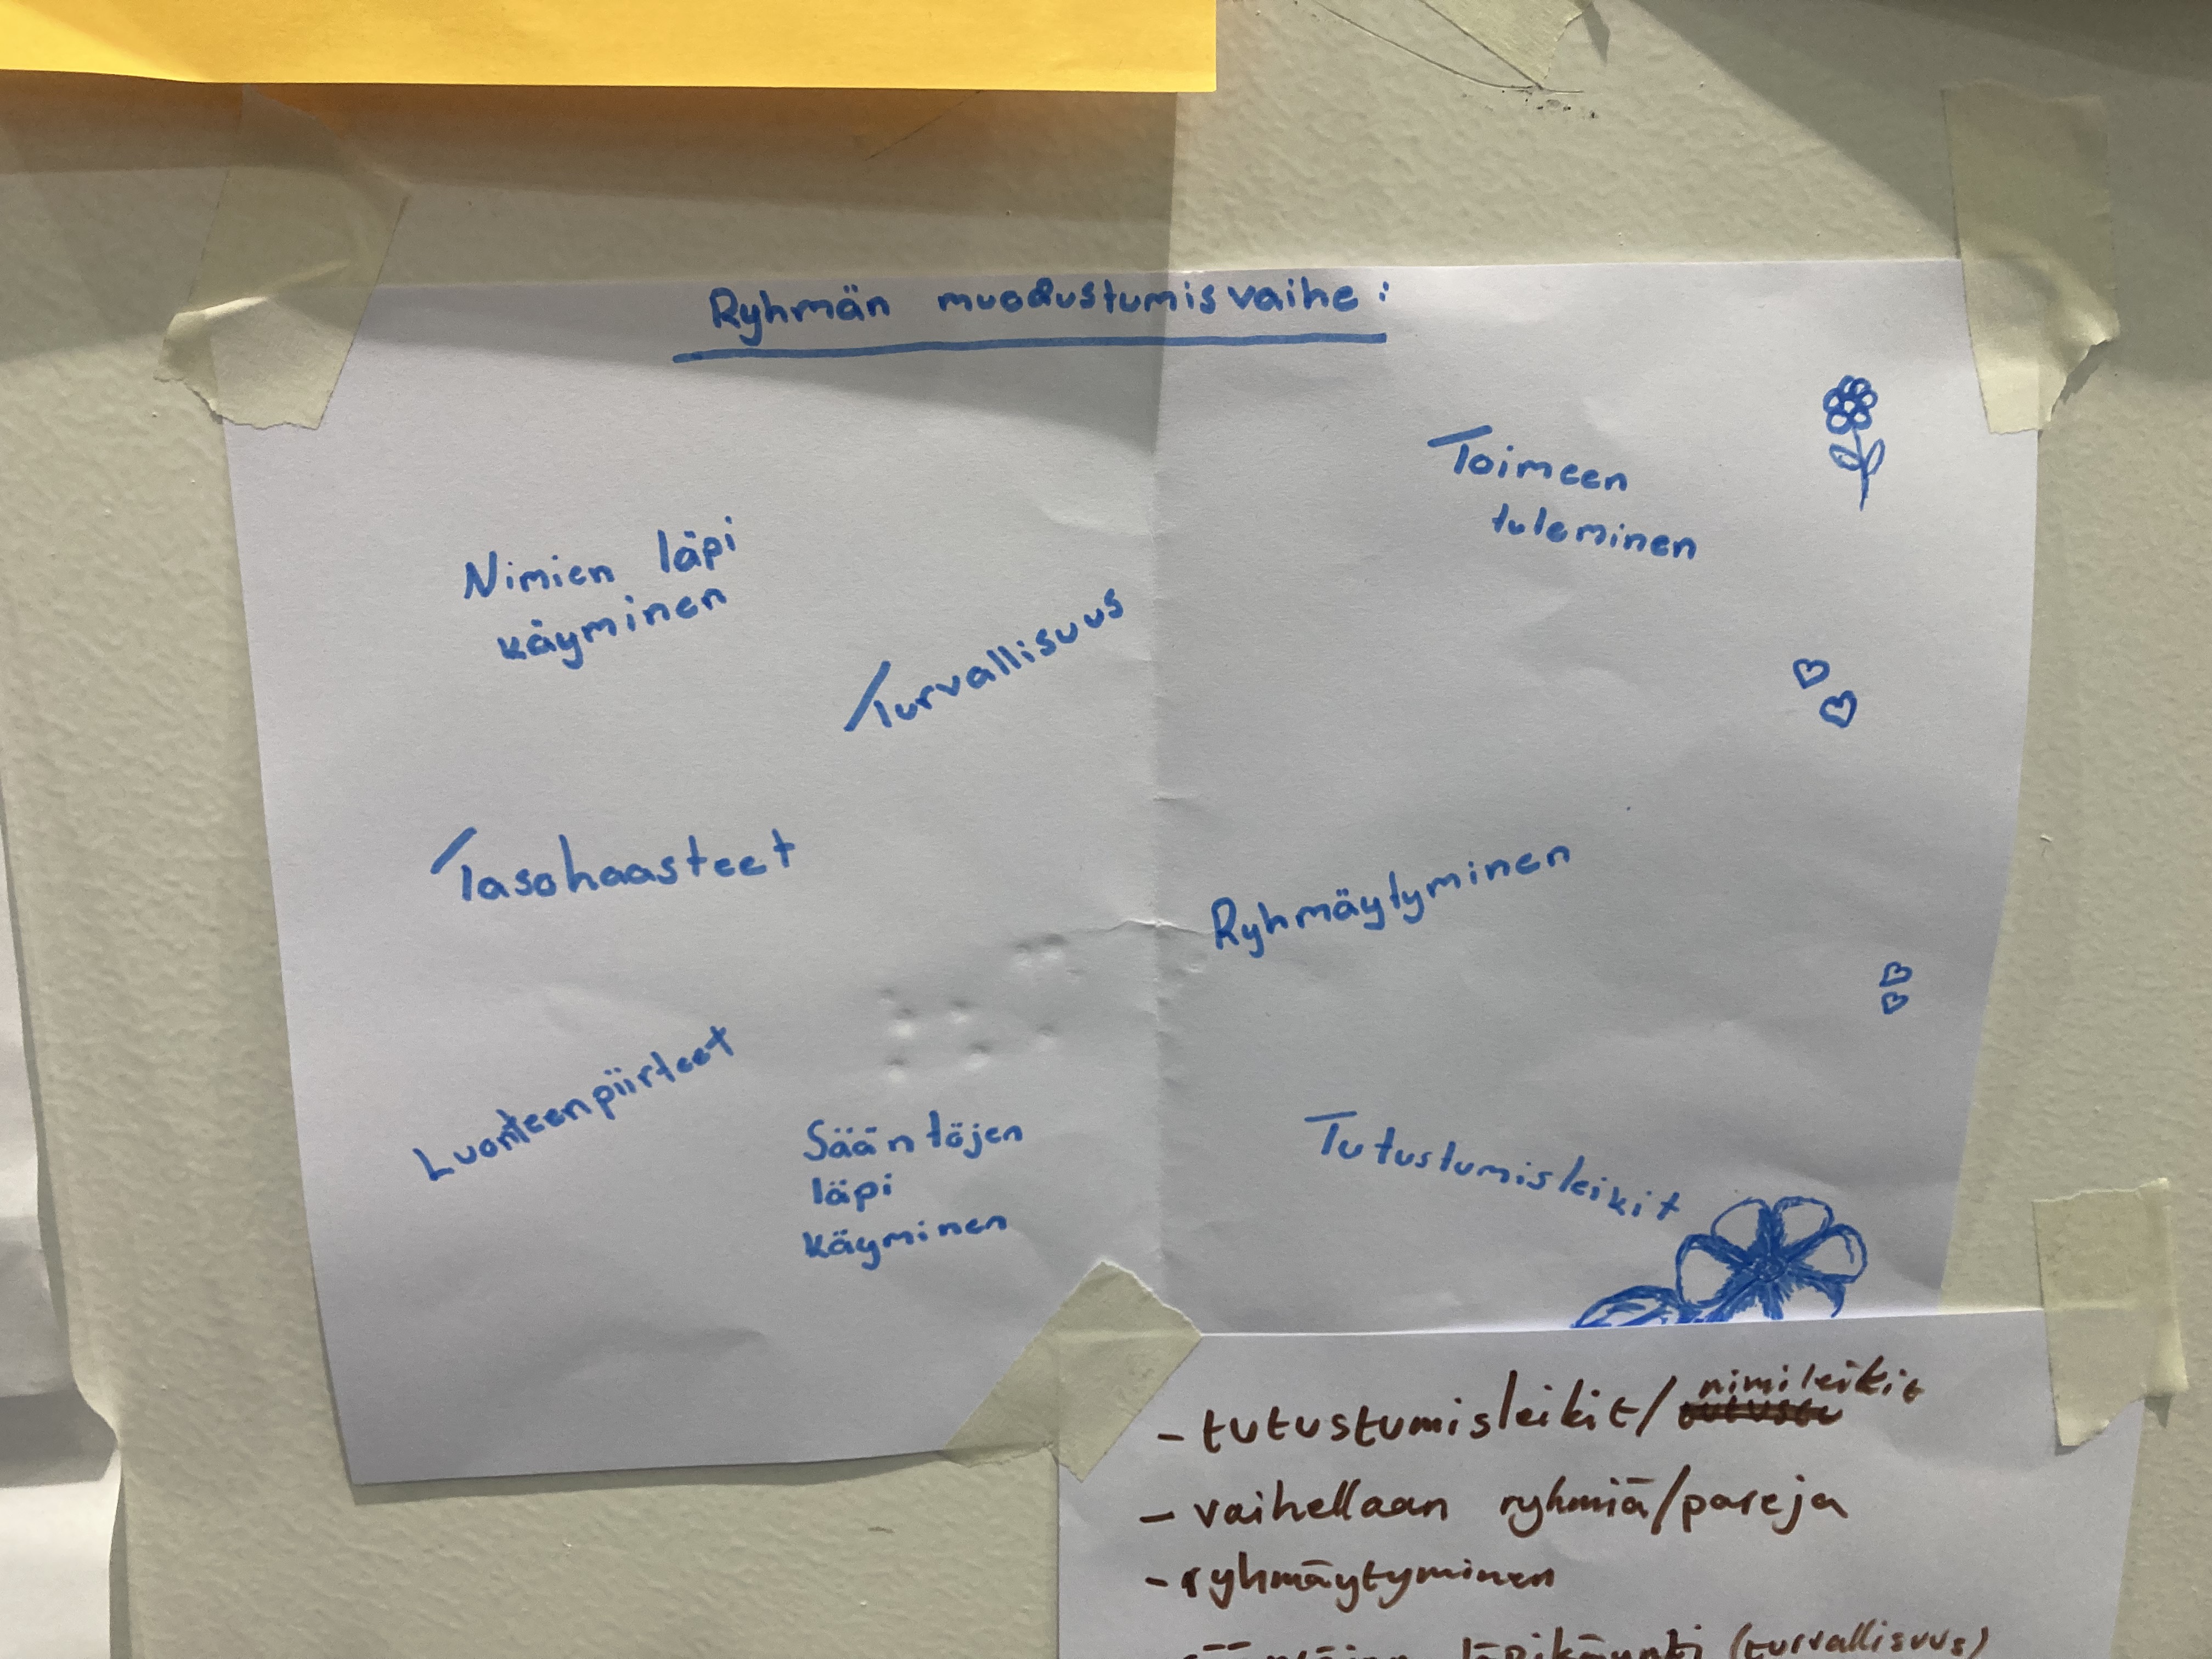 Ryhmän muodustumisvaihe:
Toimeen
tuleminen
Nimien läpi
käyminen
Turvallisuus
Tasohaasteet
Ryhmäytyminen
Luonteenpiirteet
Sääntöjen
läpi
käyminen
Tutustumisleikit
- tutustumisleikit/ nimileikit
- vaihellaan ryhmiä/pareja
- ryhmäytyminen
sääntöjen läpikäynti (turvallisuus)